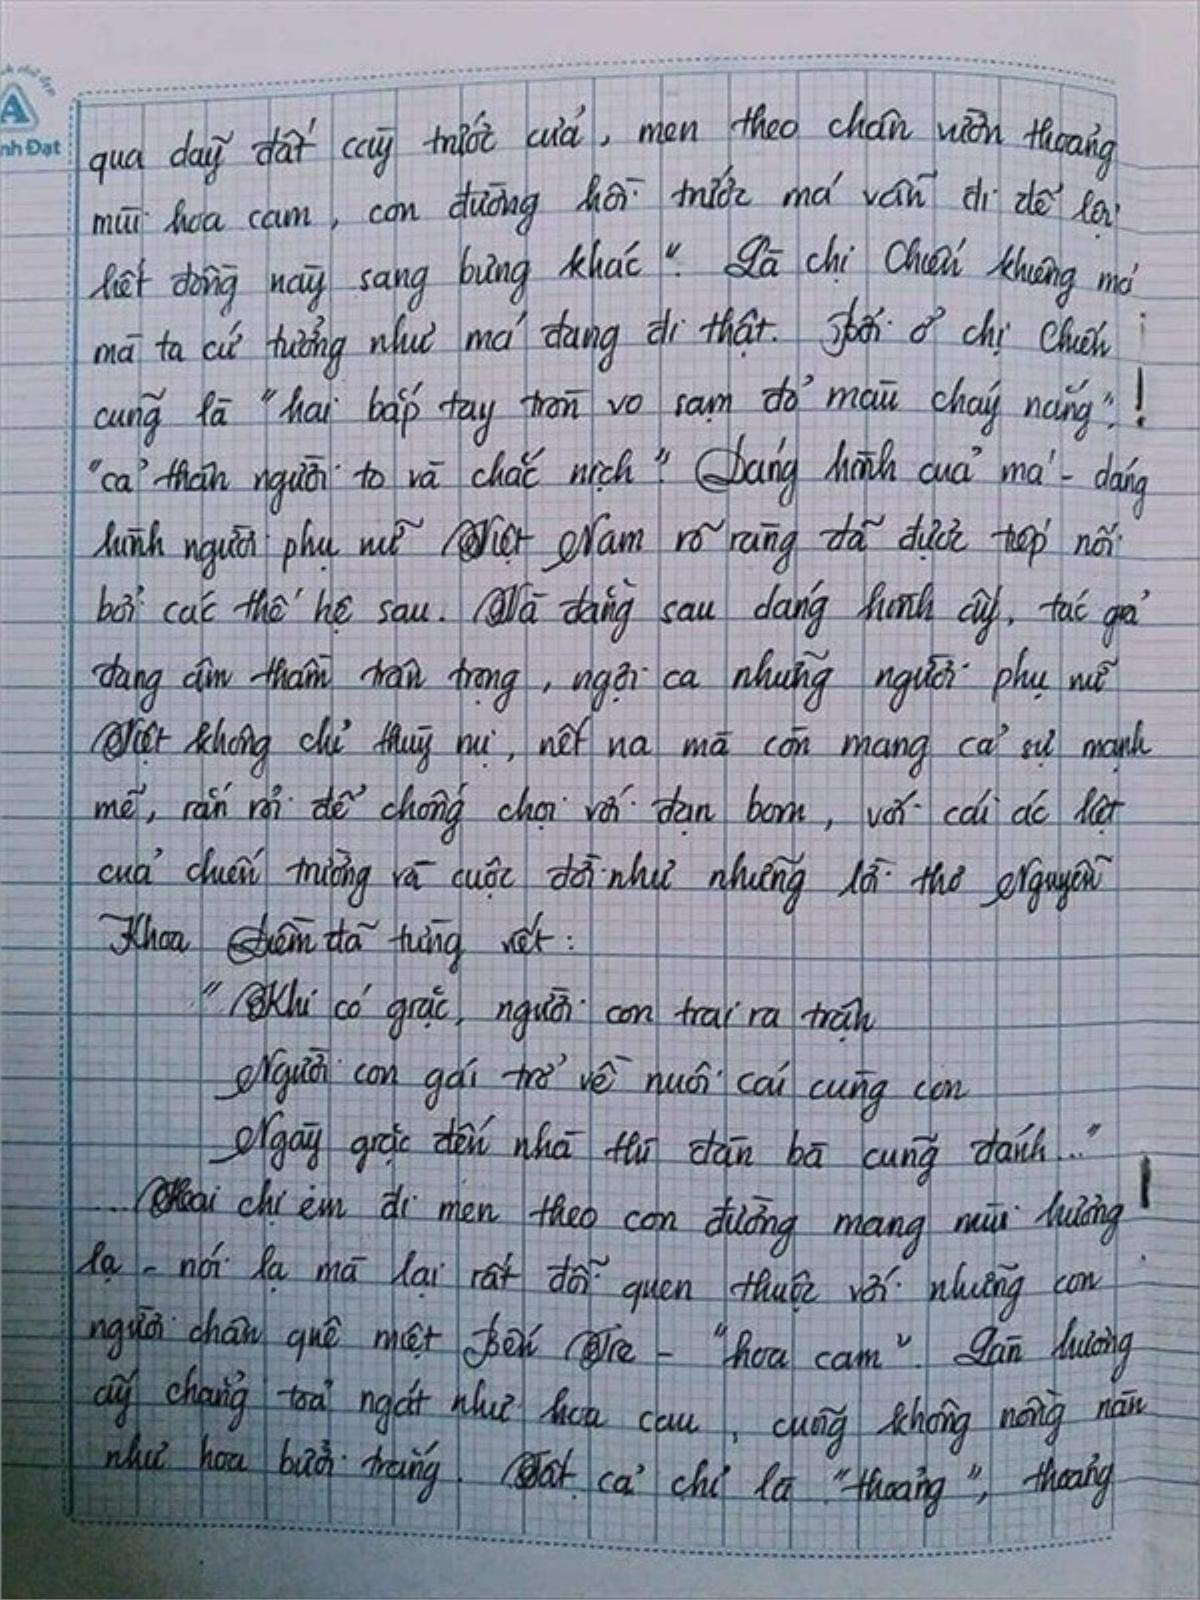 qua dãy đất cày trước cửa, men theo chân vườn thoảng
mùi hoa cam, con đường hồi trước má vẫn đi để lội
hết đồng này sang bưng khác". Là chị Chiến khiêng má
mà ta cứ tưởng như má đang đi thật. Bởi ở chị Chiến
cũng là "hai bắp tay tròn vo sạm đỏ màu cháy nắng",
"cả thân người to và chắc nịch". Dáng hình của má - dáng
hình người phụ nữ Việt Nam rõ ràng đã được tiếp nối
bởi các thế hệ sau. Và đằng sau dáng hình ấy, tác giả
đang âm thầm trân trọng, ngợi ca những người phụ nữ
Việt không chỉ thuỳ mị, nết na mà còn mang cả sự mạnh
mẽ, rắn rỏi để chống chọi với đạn bom, với cái ác liệt
của chiến trường và cuộc đời như những lời thơ Nguyễn
Khoa Điềm đã từng viết:
"Khi có giặc, người con trai ra trận
Người con gái trở về nuôi cái cùng con
Ngày giặc đến nhà thì đàn bà cũng đánh..."
...Hai chị em đi men theo con đường mang mùi hương
lạ - nói lạ mà lại rất đỗi quen thuộc với những con
người chân quê miệt Bến Tre - "hoa cam". Làn hương
ấy chẳng toả ngát như hoa cau, cũng không nồng nàn
như hoa bưởi trắng. Tất cả chỉ là "thoảng", thoảng
A
nh Đạt